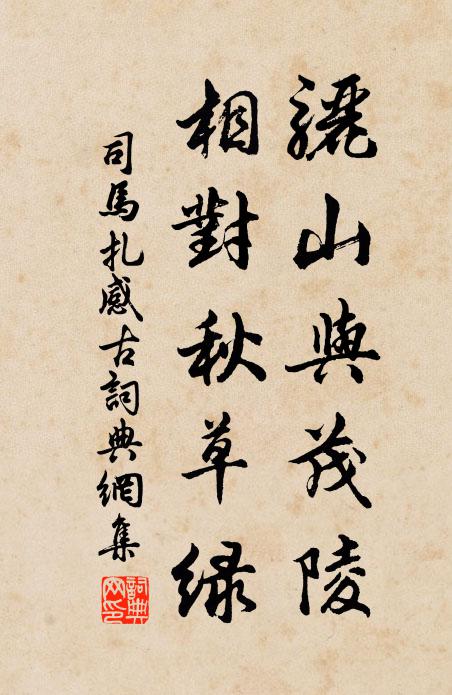 驪山與茂陵
相對秋草綠
司馬扎感古詞典網集
詞典網印